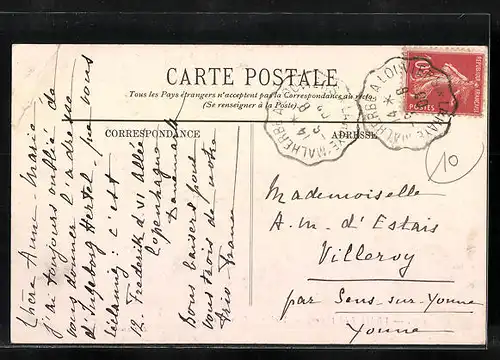 CARTE POSTALE
Tous les Pays étrangers n'acceptent pas la Correspondance au recto
(Se renseigner à la Poste)
CORRESPONDANCE
ADRESSE
Chère Anne-Marie
j'ai toujours oublié de
vous donner l'adresse
d'Ingeborg Hertel,
c'est
12. Frederik d. VI Allée
Copenhague
Danemark
Bons baisers pour
vous trois de notre
trio
Mademoiselle
A.M. d'Estais
Villeroy
par Sens-sur-Yonne
Yonne
10
POSTES